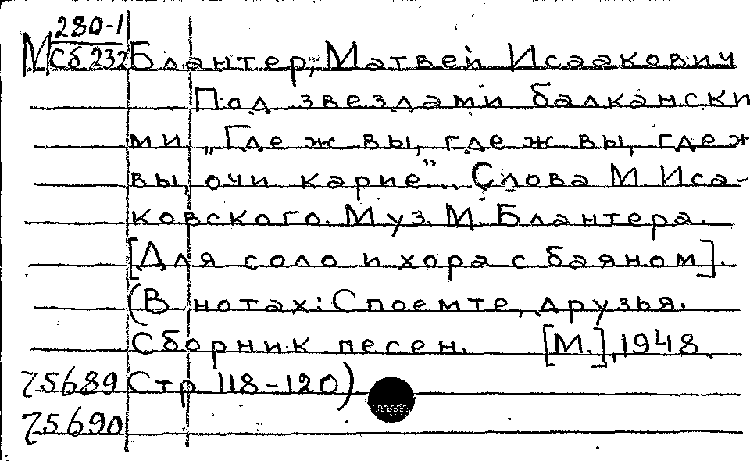 280-1
М Сб 232 Блантер, Матвей Исаакович
Под звездами балкански
ми „Где ж вы, где ж вы, где ж
вы, очи карие”.. Слова М. Иса-
ковского. Муз. М. Блантера.
[Для соло и хора с баяном].
(В нотах: Споемте, друзья.
Сборник песен. [М.], 1948.
75689 Стр 118-120)
75690